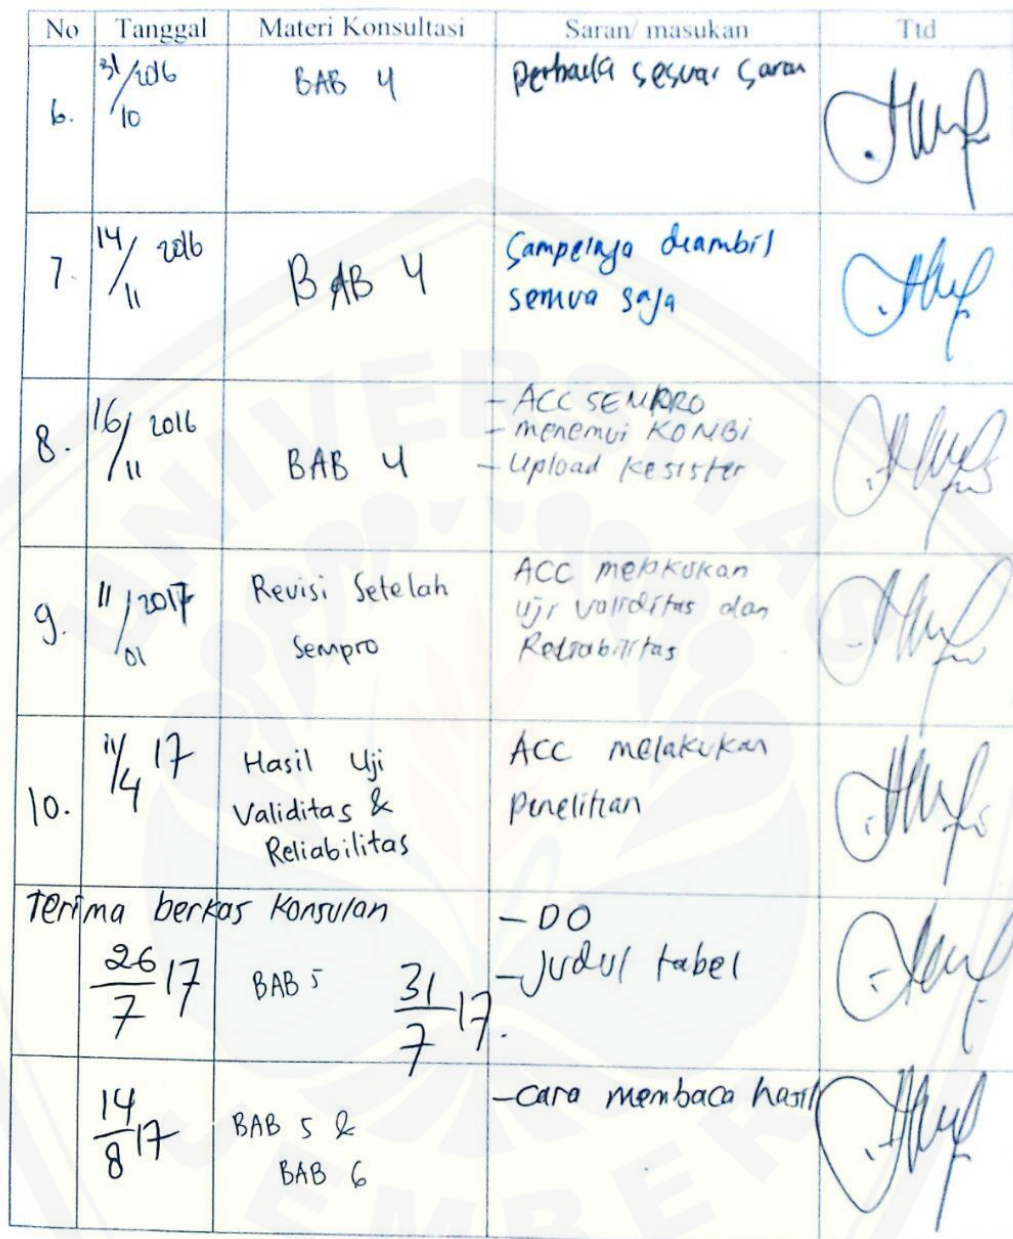 No Tanggal Materi Konsultasi Saran/ masukan Ttd
6. 31/10 2016 BAB 4 Perbaiki sesuai saran
7. 14/11 2016 BAB 4 Sampelnya diambil
semua saja
8. 16/11 2016 BAB 4 - ACC SEMPRO
- menemui KOMBI
- Upload ke sister
9. 11/01 2017 Revisi Setelah
Sempro
ACC melakukan
uji validitas dan
Reliabilitas
10. 11/4 17 Hasil Uji
Validitas &
Reliabilitas
ACC melakukan
penelitian
Terima berkas konsulan
26/7 17 BAB 5 31/7 17.
- DO
- Judul tabel
14/8 17 BAB 5 &
BAB 6
- cara membaca hasil
UNIVERSITAS
JEMBER